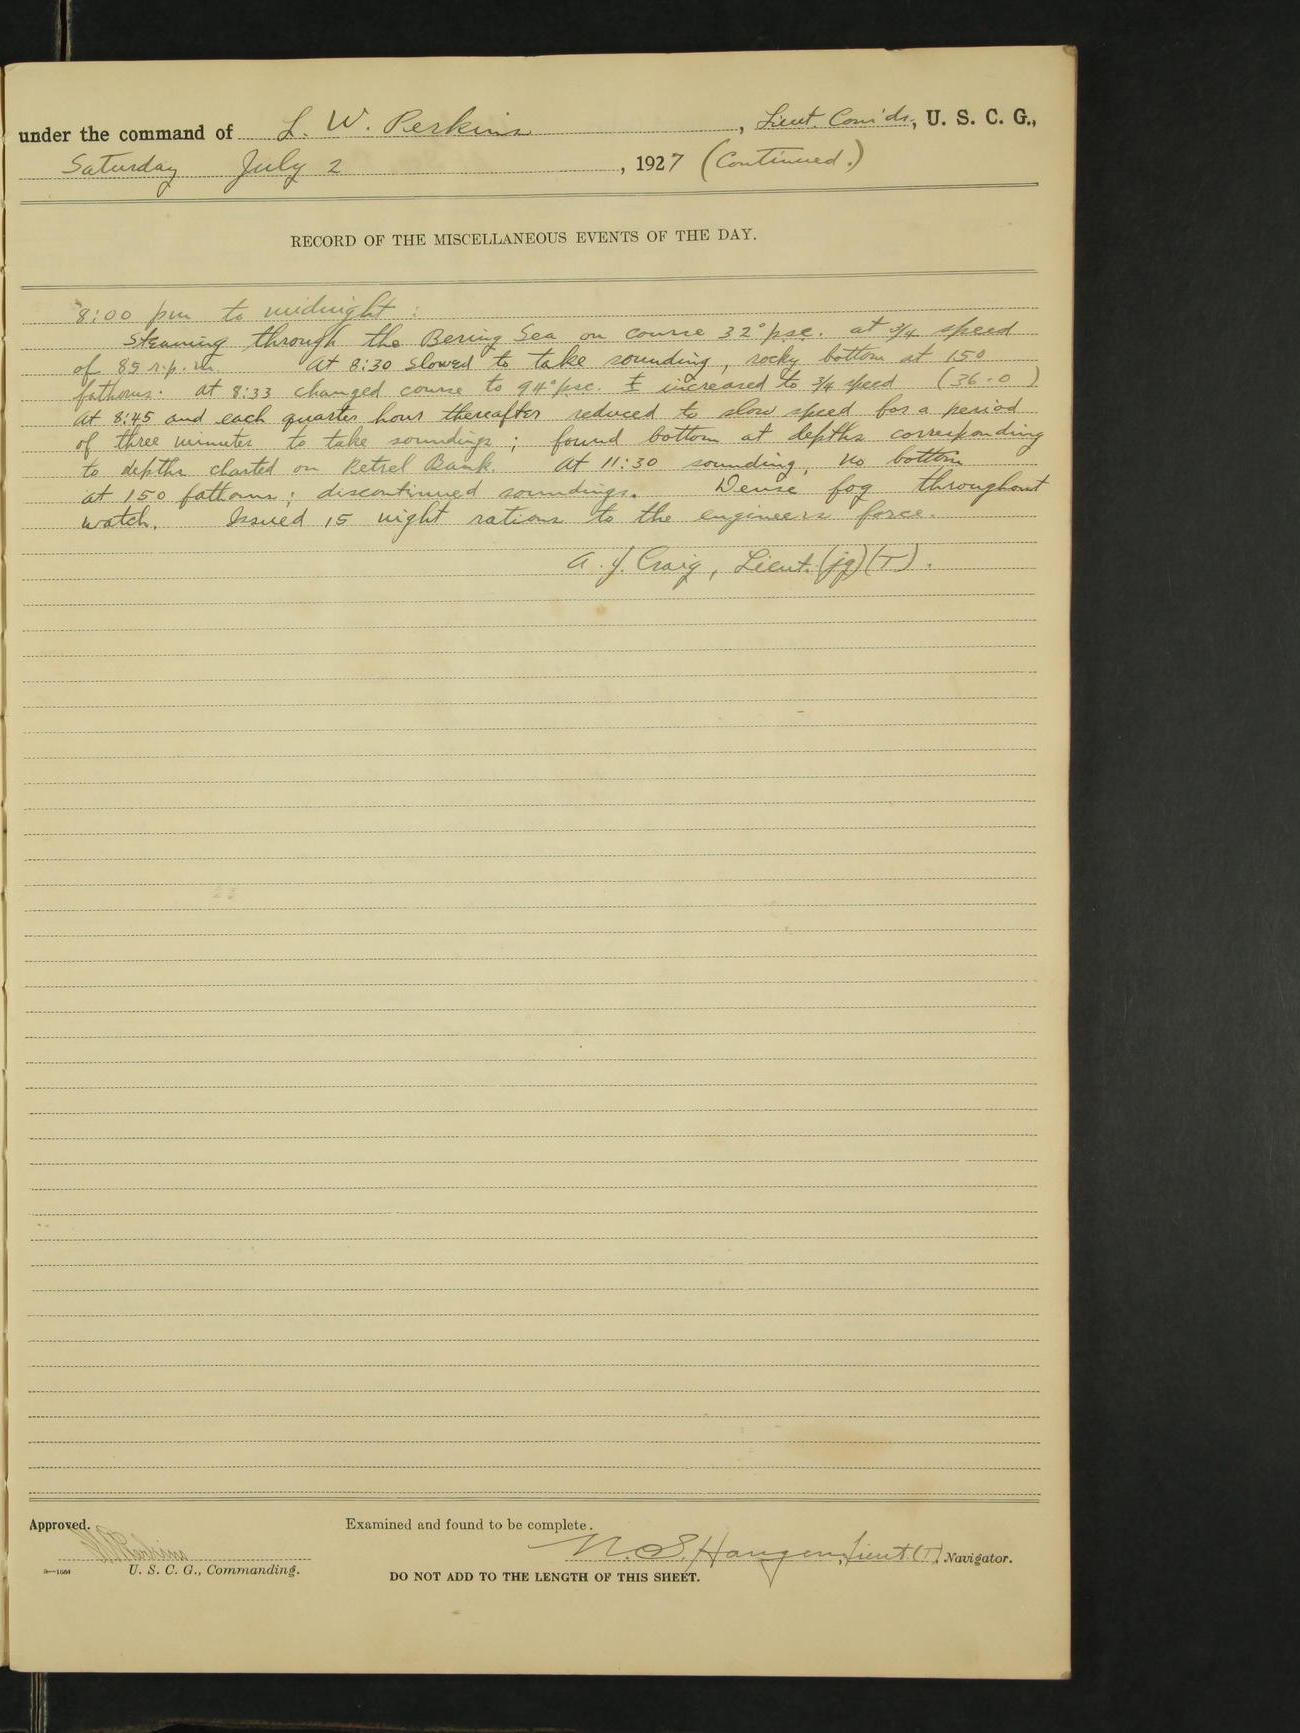 under the command of L. W. Perkins, Lieut. Com'dr, U. S. C. G.,
Saturday July 2, 1927 (Continued.)
RECORD OF THE MISCELLANEOUS EVENTS OF THE DAY.
8:00 pm to midnight:
Steaming through the Bering Sea on course 32° psc. at 3/4 speed
of 85 r.p.m. At 8:30 slowed to take sounding, rocky bottom at 150
fathoms. at 8:33 changed course to 94° psc. & increased to 3/4 speed (36-0)
at 8:45 and each quarter hour thereafter reduced to slow speed for a period
of three minutes to take soundings; found bottom at depths corresponding
to depths charted on Petrel Bank. At 11:30 sounding, no bottom
at 150 fathoms; discontinued soundings. Dense fog throughout
watch. Issued 15 night rations to the engineers force.
A. J. Craig, Lieut. (jg)(T).
Approved.
Examined and found to be complete.
L W Perkins
N. S. Haugen, Lieut (T), Navigator.
U. S. C. G., Commanding.
DO NOT ADD TO THE LENGTH OF THIS SHEET.